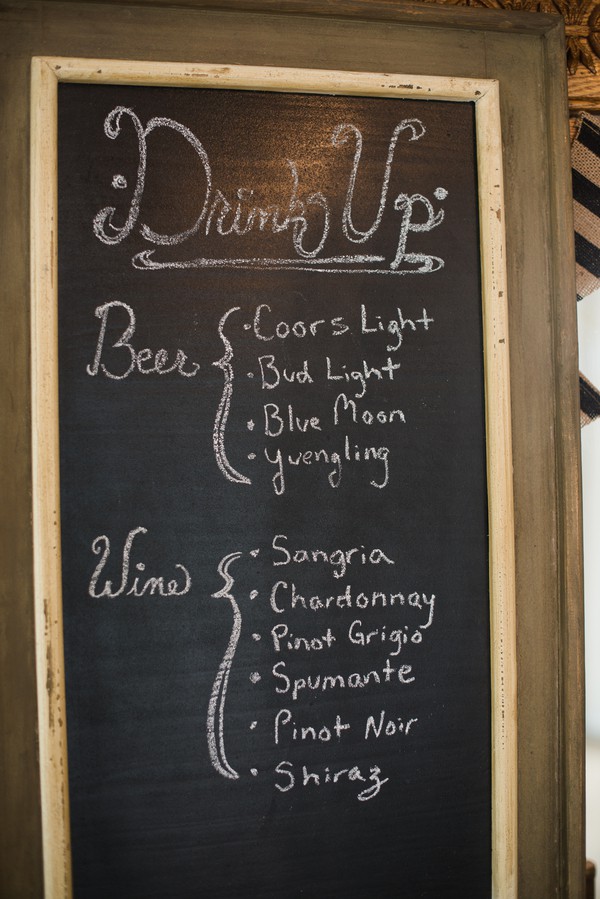 Drink Up
Beer
· Coors Light
· Bud Light
· Blue Moon
· Yuengling
Wine
· Sangria
· Chardonnay
· Pinot Grigio
· Spumante
· Pinot Noir
· Shiraz